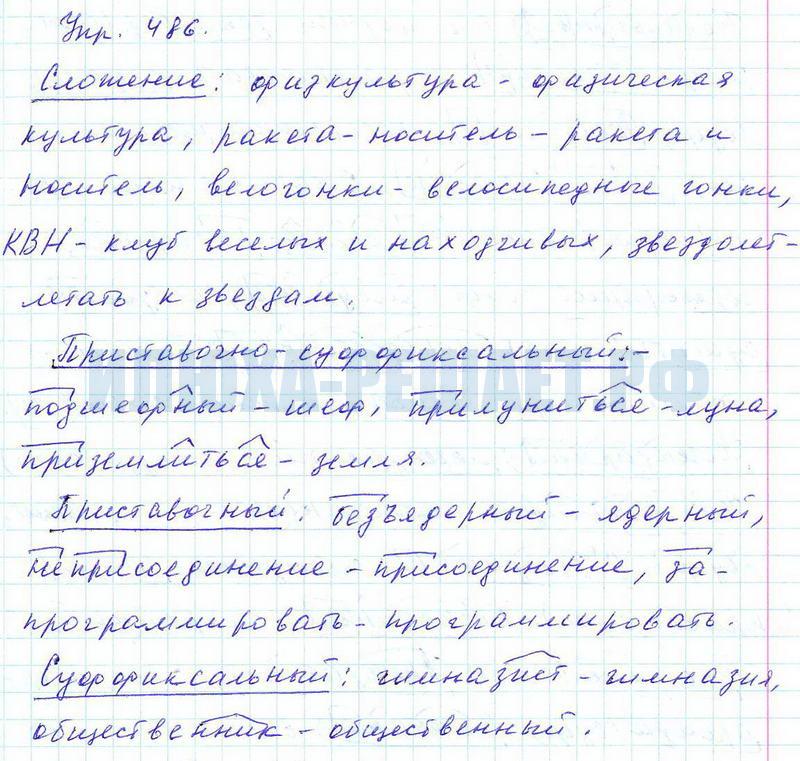 Упр. 486.
Сложение: физкультура - физическая
культура, ракета-носитель - ракета и
носитель, велогонки - велосипедные гонки,
КВН - клуб веселых и находчивых, звездолет -
летать к звездам.
Приставочно-суффиксальный: -
ИЛЮХА-РЕШАЕТ.РФ
подшефный - шеф, прилуниться - луна,
приземлиться - земля.
Приставочный: безъядерный - ядерный,
неприсоединение - присоединение, за-
программировать - программировать.
Суффиксальный: гимназист - гимназия,
общественник - общественный.